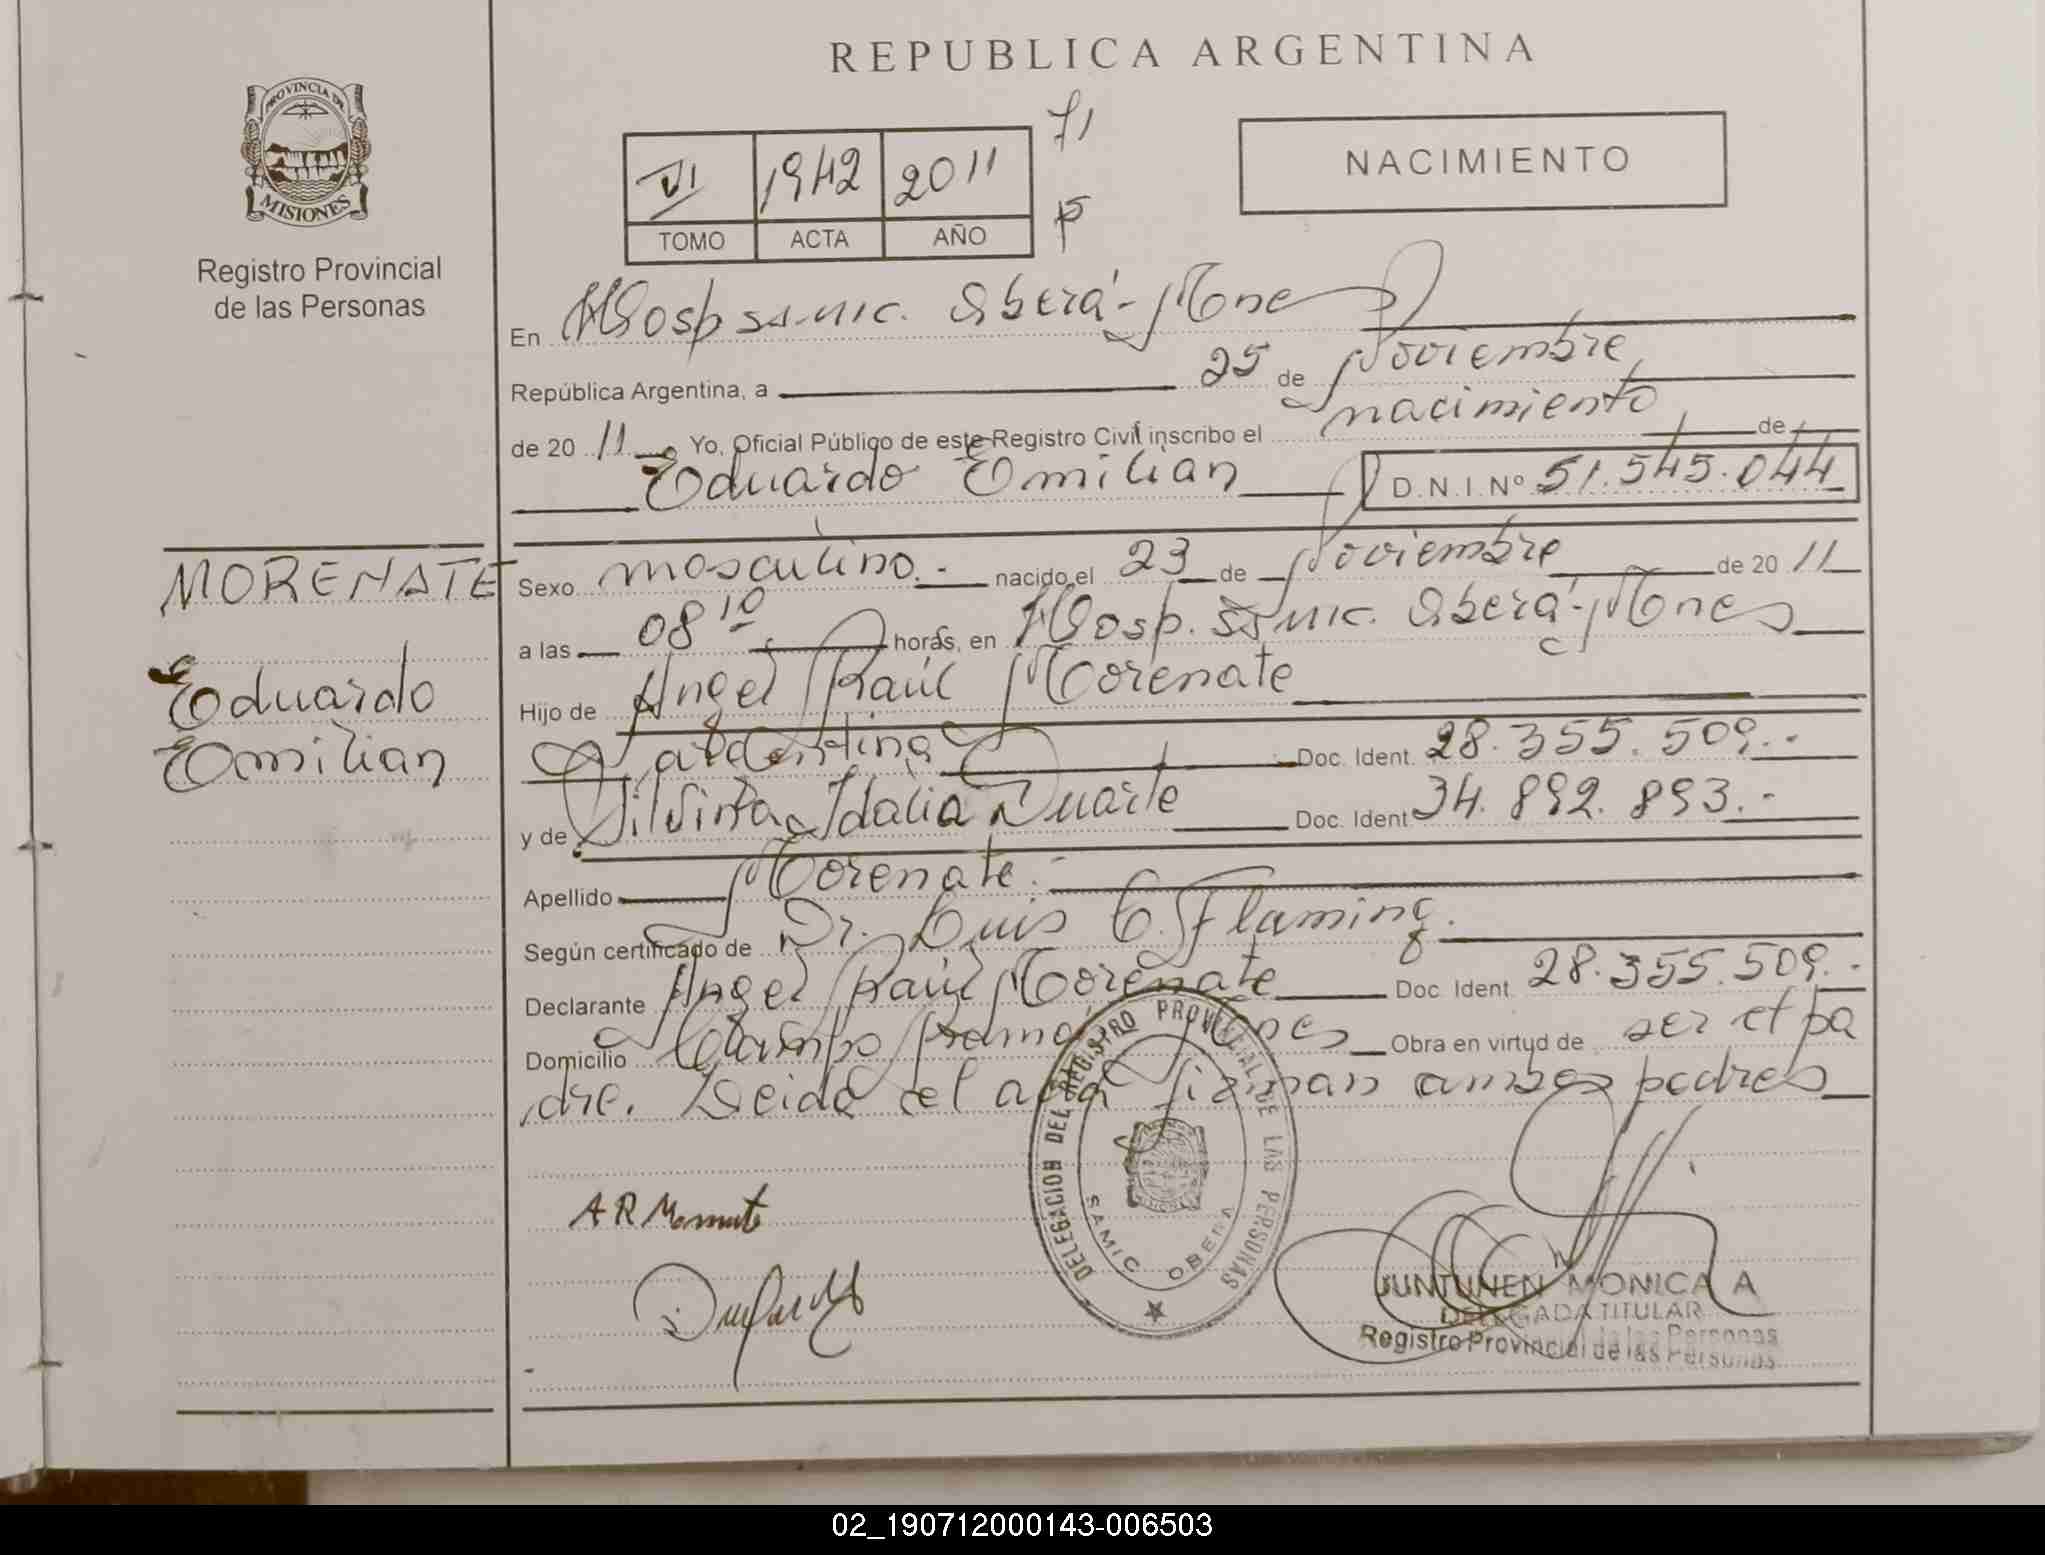 REPUBLICA ARGENTINA
PROVINCIA DE MISIONES
Registro Provincial
de las Personas
VI 1942 2011 71
TOMO ACTA AÑO
NACIMIENTO
En Hosp SAMIC. Oberá-Mnes
República Argentina, a 25 de Noviembre
de 2011 Yo, Oficial Público de este Registro Civil inscribo el nacimiento de
Eduardo Emilian D.N.I.Nº 51.545.044
MORENATE
Eduardo
Emilian
Sexo masculino.- nacido el 23 de Noviembre de 2011
a las 08 10 horas, en Hosp. SAMIC. Oberá-Mnes
Hijo de Angel Raúl Morenate
argentina Doc. Ident. 28.355.509.-
y de Silvina Idalia Duarte Doc. Ident 34.892.893.-
Apellido Morenate.-
Según certificado de Dr. Luis C. Flaming.
Declarante Angel Raúl Morenate Doc. Ident. 28.355.509.-
Domicilio Campo Ramón Mnes Obra en virtud de ser el pa
dre. Leida el acta firman ambos padres
DELEGACION DEL REGISTRO PROVINCIAL DE LAS PERSONAS
SAMIC OBERA
A R Morenate
JUNTUNEN MONICA A
DELEGADA TITULAR
Registro Provincial de las Personas
02_190712000143-006503